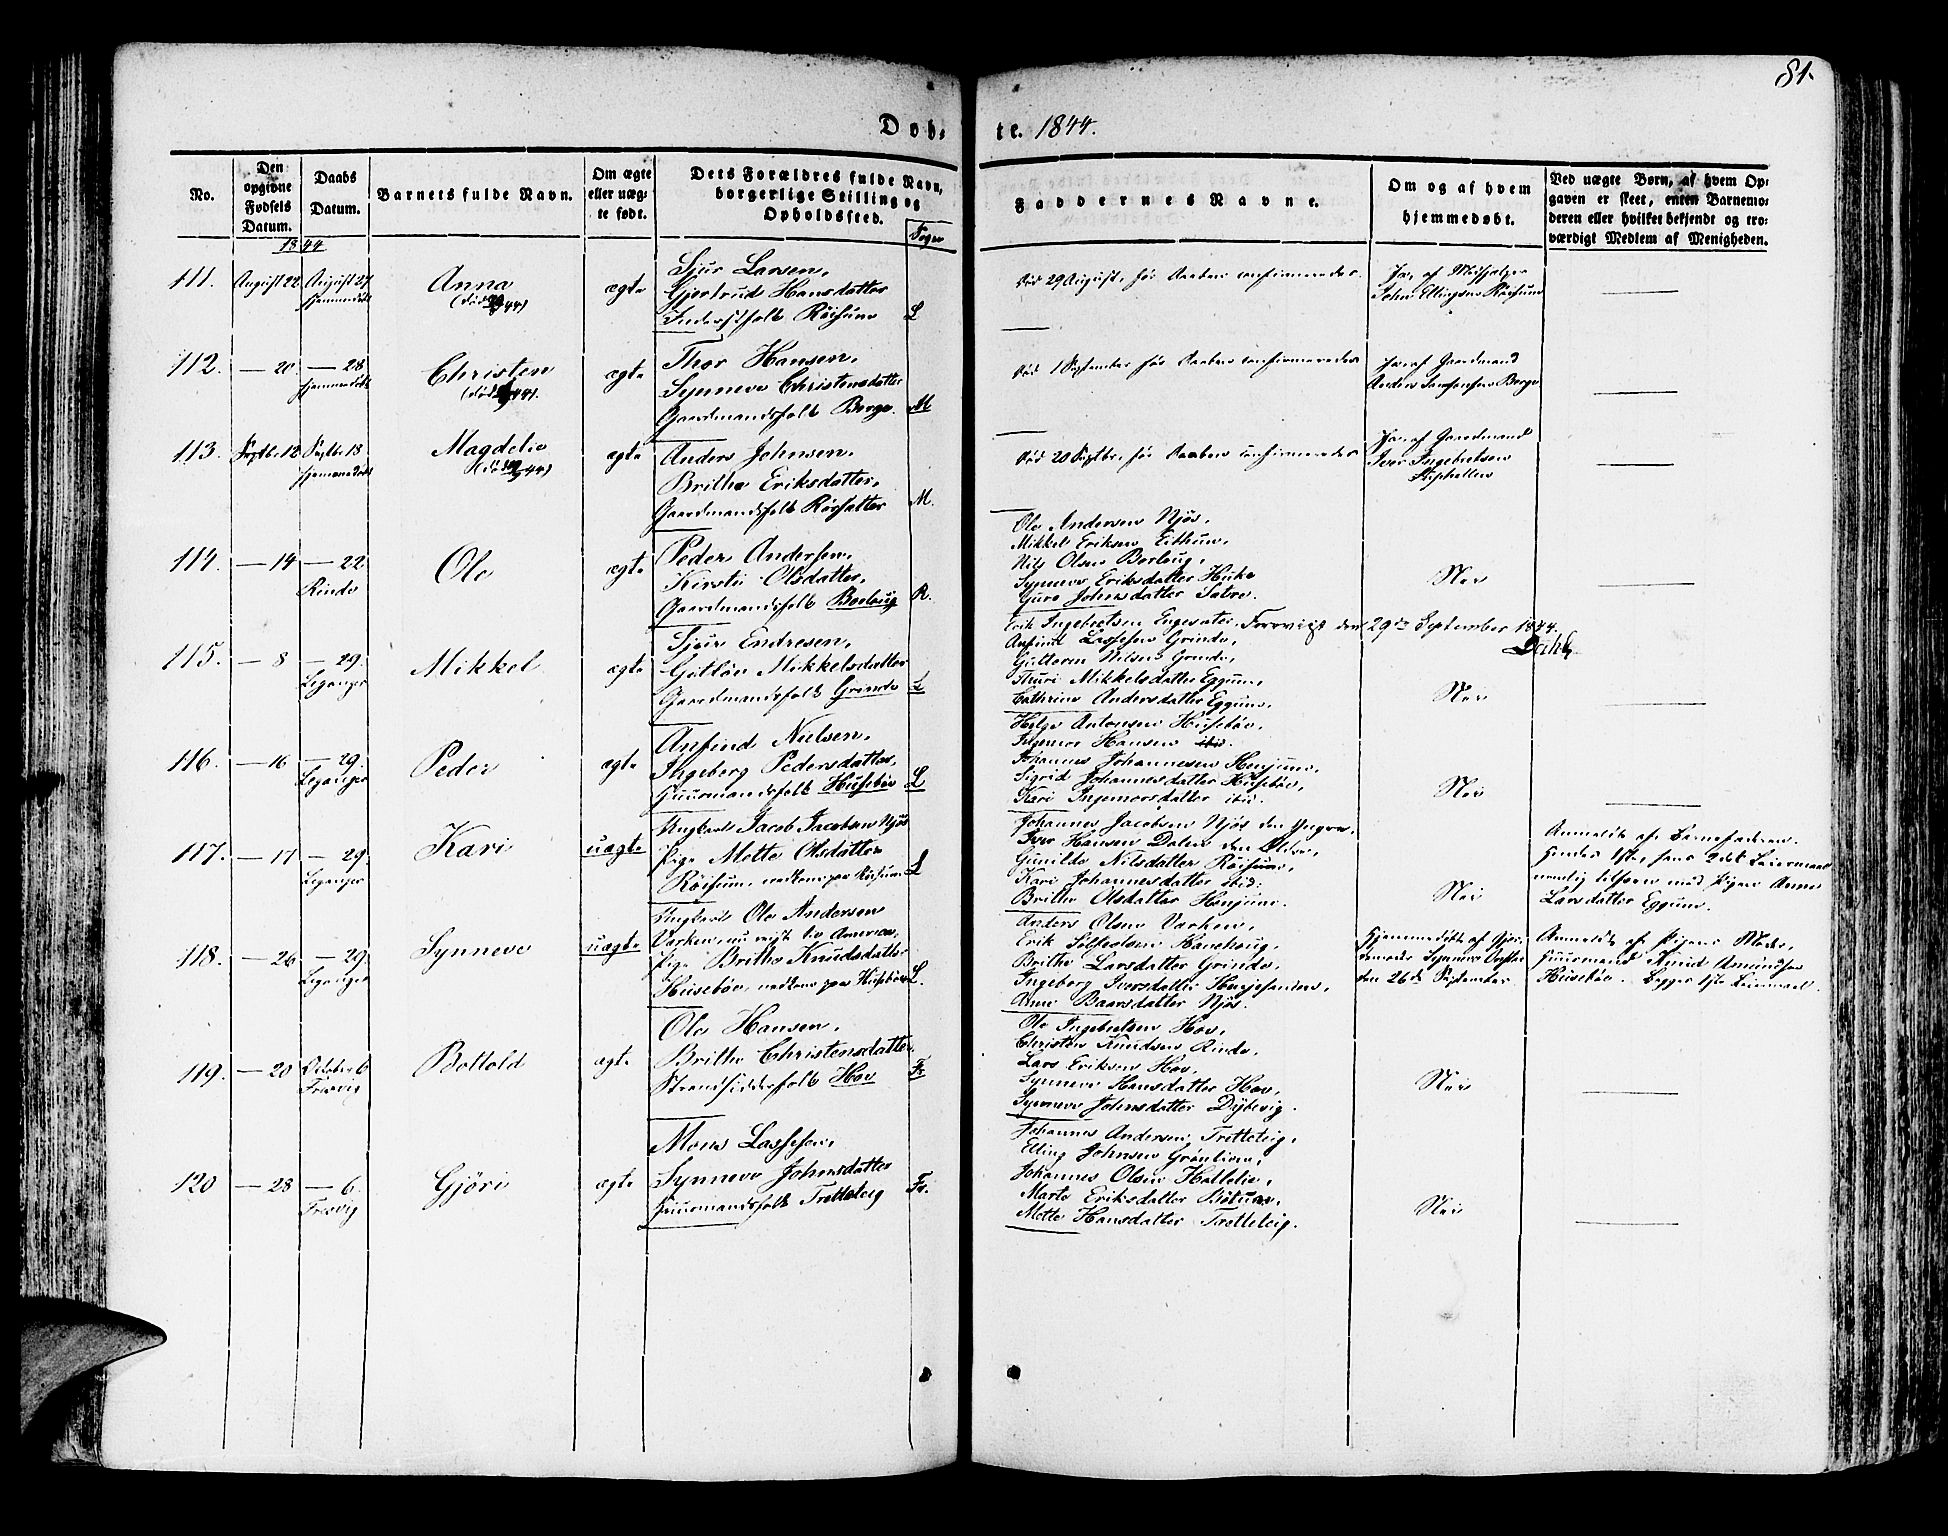 81.
Døb-
te. 1844.
No.
Den opgivne Fødsels Datum.
Daabs Datum.
Barnets fulde Navn.
Om ægte eller uægte født.
Dets Forældres fulde Navn, borgerlige Stilling og Opholdssted.
Sogn
Faddernes Navne.
Om og af hvem hjemmedøbt.
Ved uægte Børn, af hvem Opgaven er skeet, enten Barnemoderen eller hvilket bekjendt og troværdigt Medlem af Menigheden.
1844
111. August 22 August 27 hjemmedøbt
Anna
ægte
Sjur Larsen,
Gjertrud Hansdatter
Inderstfolk Røisum L
Død 29 August, før Daaben confirmeredes.
Ja, af
John Ellingsen Røisum
112. — 20. — 28 hjemmedøbt
Christen
ægte
Thor Hansen,
Synneve Christensdatter
Gaardmandsfolk Berge. M
Død 1 September før Daaben confirmeredes
Ja, af Gaardmand
Anders Berge
113. Septbr. 12 Septbr. 18 hjemmedøbt
Magdelie
ægte
Anders Johnsen,
Brithe Eriksdatter,
Gaardmandsfolk M.
Død 20 Septbr. før Daaben confirmeredes
Ja, af Gaardmand
Iver Ingebretsen
114. — 14 — 22 Rinde
Ole
ægte
Peder Andersen,
Kirsti Olsdatter,
Gaardmandsfolk Borlaug R.
Ole Andersen Njøs,
Mikkel Eriksen Eithun,
Nils Olsen Borlaug,
Synneve Eriksdatter Huke
Guro Johnsdatter Sætre.
Nei
115. — 8 — 29. Leganger
Mikkel
ægte
Sjur Endresen,
Gitløv Mikkelsdatter
Gaardmandsfolk Grinde L
Erik Ingebretsen Engesæter, Forevist den 29de September 1844.
Dahl
Anfind Lassesen Grinde,
Guttorm Nilsen Grinde,
Thuri Mikkelsdatter Eggum,
Cathrine Andersdatter Eggum.
Nei
116. — 16 — 29. Leganger
Peder
ægte
Anfind Nielsen,
Ingeborg Pedersdatter,
Huusmandsfolk Husebøe L
Helge Antonsen Husebøe,
Ingemor Hansen ibid.
Johannes Johannesen Henjum,
Sigrid Johannesdatter Husebøe,
Kari Ingemorsdatter ibid.
Nei
117. — 17 — 29. Leganger
Kari
uægte
Ungkarl Jacob Jacobsen Njøs
Pige Mette Olsdatter
Røisum, nedkom paa Røisum L
Johannes Jacobsen Njøs den Yngre,
Iver Hansen Dalen den Eldre,
Gunilde Nilsdatter Røisum,
Kari Johannesdatter ibid.
Brithe Olsdatter Henjum.
Nei
Anmeldt af Barnefaderen.
Hendes 1ste, hans 2det Leiermaal
nemlig tilforn med Pigen Anne
Larsdatter Eggum.
118. — 26 — 29. Leganger
Synneve
uægte
Ungkarl Ole Andersen
Varken, nu reist til America,
Pige Brithe Knudsdatter
Husebøe, nedkom paa Husebøe L.
Anders Olsen Varken,
Erik
Brithe Larsdatter Grinde,
Ingeborg Iversdatter
Anne Baarsdatter Njøs.
Hjemmedøbt af
Synneve
den 26de September.
Anmeldt af Pigens Moder,
Huusmand Knud Amundsen
Husebøe. Begges 1ste Leiermaal.
119. — 20 October 6 Fresvig
Bottold
ægte
Ole Hansen,
Brithe Christensdatter,
Strandsidderfolk Hov Fr
Ole Ingebretsen Hov,
Christen Knudsen Rinde,
Lars Eriksen Hov,
Synneve Hansdatter Hov,
Synneve Johnsdatter Dybevig.
Nei
120 — 28 — 6. Fresvig
Gjøri
ægte
Mons Lassesen,
Synneve Johnsdatter
Huusmandsfolk Tretteteig Fr.
Johannes Andersen Tretteteig,
Elling Johnsen Grønlien,
Johannes Olsen Hallelie,
Marte Eriksdatter
Mette Hansdatter Tretteteig.
Nei